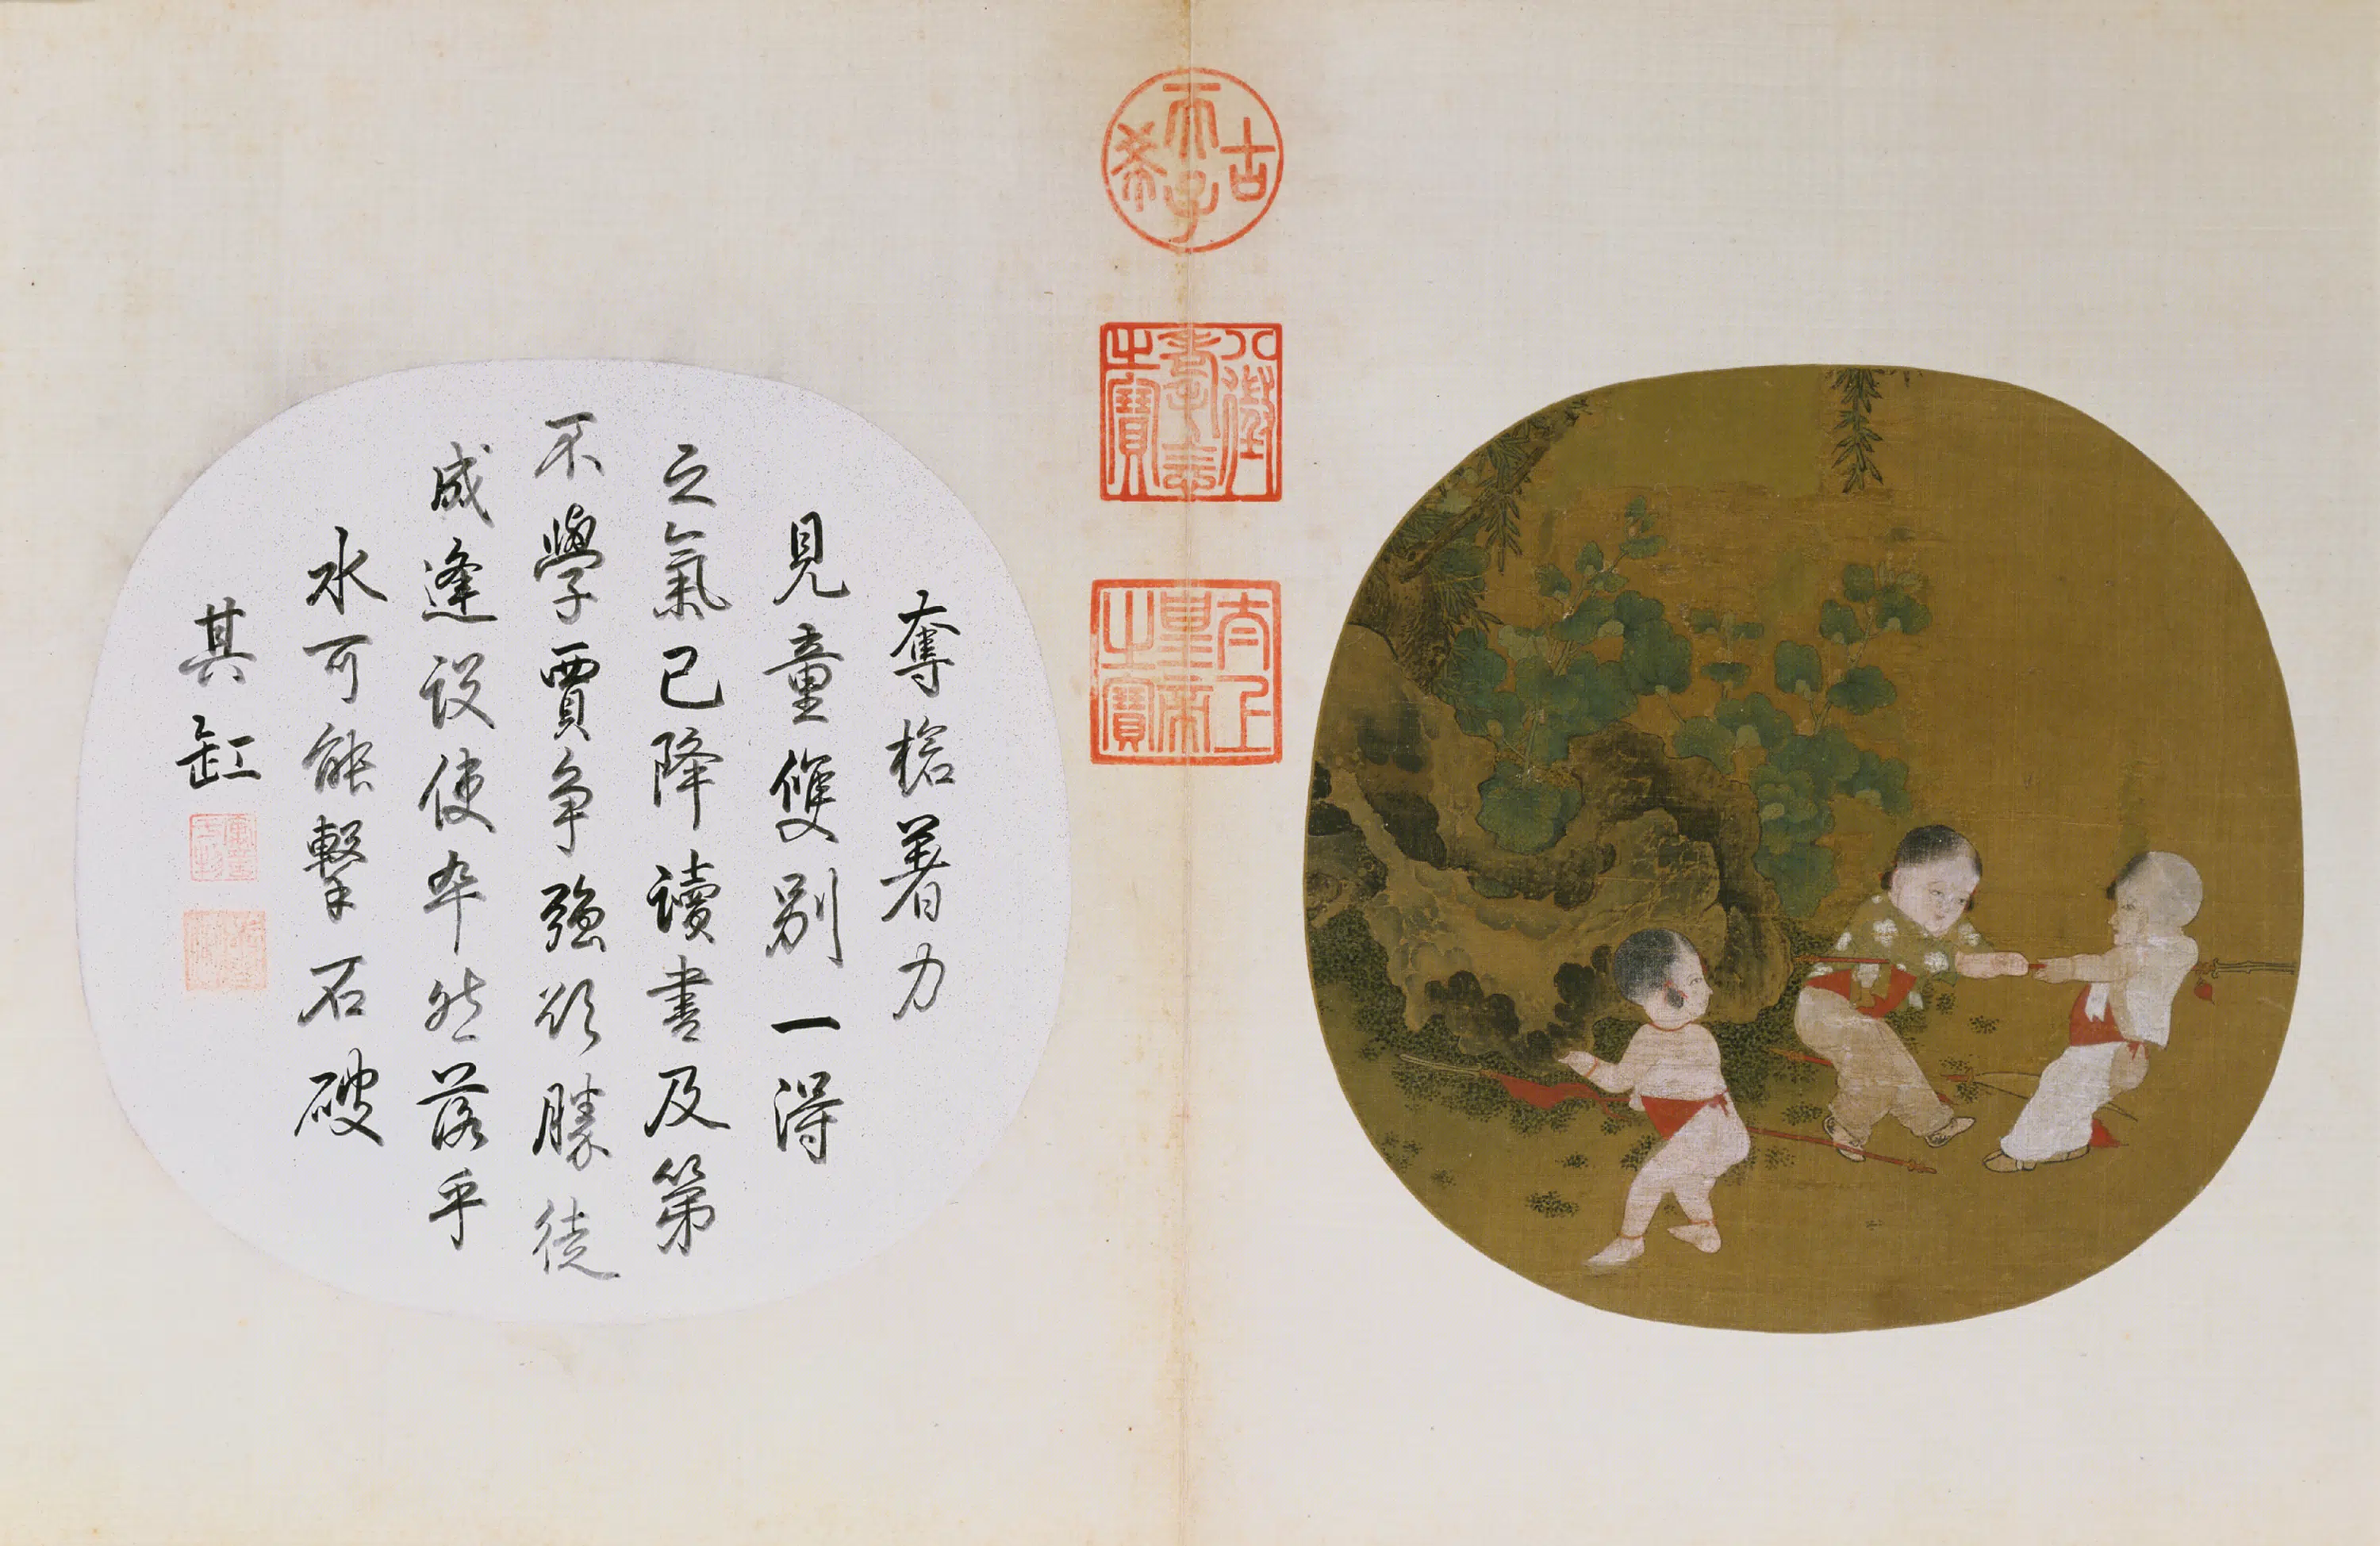 古希天子
八徵耄念之寶
太上皇帝之寶
奪槍著力
見童雙別一得
之氣已降讀書及第
不學賈爭強欲勝徒
成逢設使卒然落乎
水可能擊石破
其缸